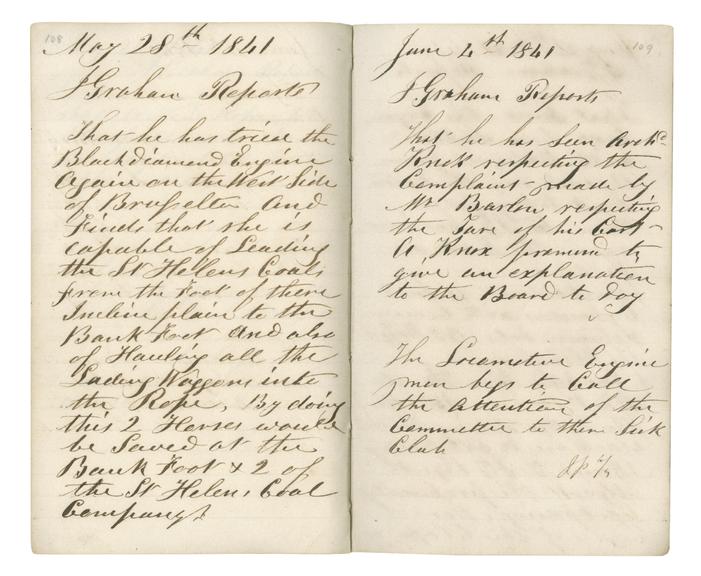 108
May 28th 1841
J Graham Reports
That he has tried the
Black diamond Engine
Again on the West Side
of Brusselton And
Finds that she is
capable of Leading
the St Helens Coals
from the Foot of there
Incline plain to the
Bank Foot And also
of Hauling all the
Lading Waggons into
the Rope, By doing
this 2 Horses would
be Saved at the
Bank Foot & 2 of
the St Helens Coal
Companys
109
June 4th 1841
J Graham Reports
That he has Seen Archd
Knox respecting the
Complaint made by
Mr Barlow respecting
the Tare of his Cart
A Knox promised to
give an explanation
to the Board to day
The Locomotive Engine
men begs to Call
the Attention of the
Committee to there Sick
Club